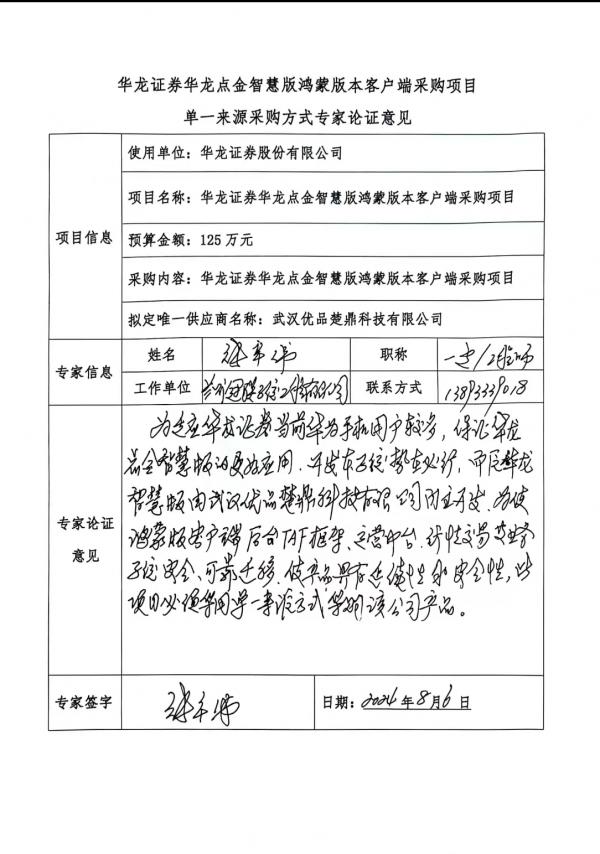 华龙证券华龙点金智慧版鸿蒙版本客户端采购项目
单一来源采购方式专家论证意见
项目信息
使用单位：华龙证券股份有限公司
项目名称：华龙证券华龙点金智慧版鸿蒙版本客户端采购项目
预算金额：125 万元
采购内容：华龙证券华龙点金智慧版鸿蒙版本客户端采购项目
拟定唯一供应商名称：武汉优品楚鼎科技有限公司
专家信息
姓名
职称
工作单位
联系方式
专家论证
意见
为适应华龙证券当前华为手机用户较多，保证华龙
点金智慧版的更好应用，开发本系统势在必行，华龙
智慧版由武汉优品楚鼎科技有限公司开发，为使
鸿蒙版客户端后台TAF框架、运营中台、
安全、可靠迁移，使产品具有连续性和安全性，此
项目必须采用单一来源方式采购该公司产品。
专家签字
日期：2024年8月6日